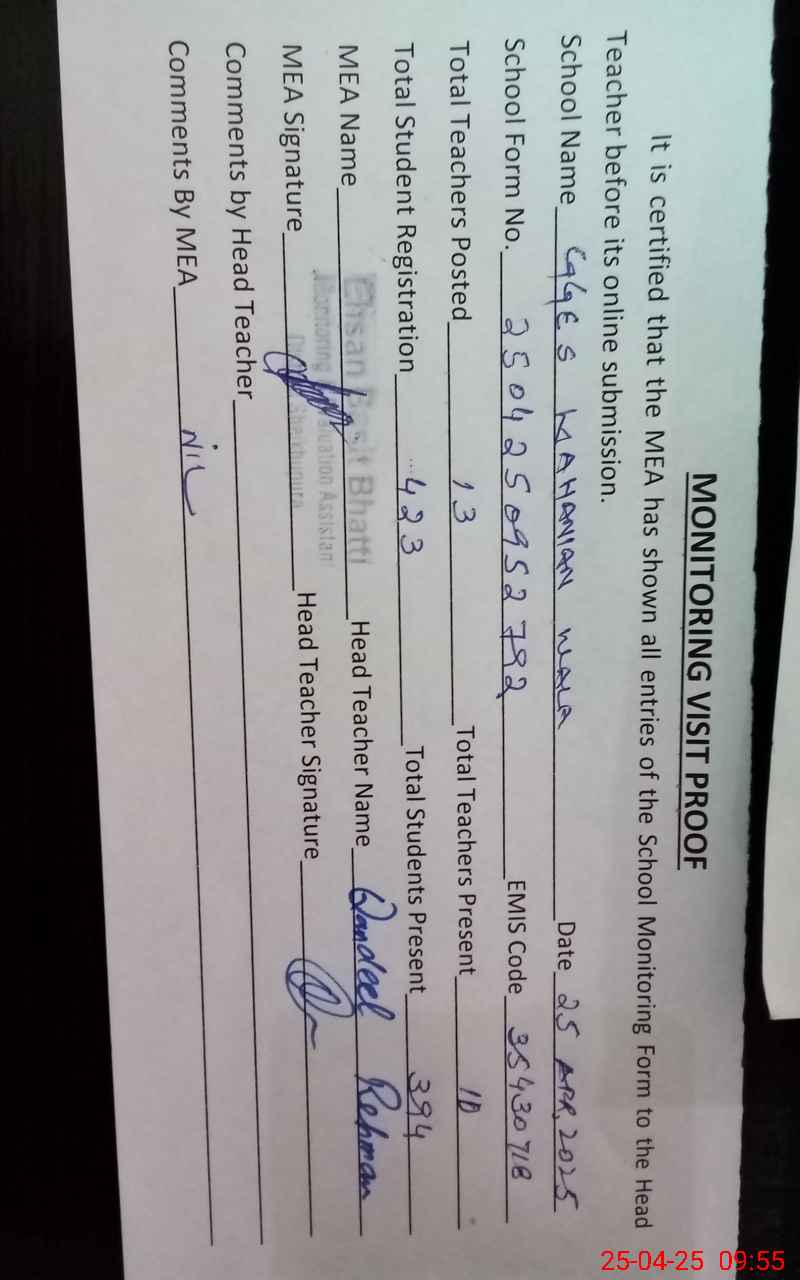 MONITORING VISIT PROOF
It is certified that the MEA has shown all entries of the School Monitoring Form to the Head
Teacher before its online submission.
School Name GGES MAHANIAN WALA Date 25 APR, 2025
School Form No. 2504250952782 EMIS Code 35430718
Total Teachers Posted 13 Total Teachers Present 10
Total Student Registration 423 Total Students Present 394
MEA Name Ehsan Basit Bhatti Head Teacher Name Qandeel Rehman
Monitoring Assistan
MEA Signature Head Teacher Signature
Sheikhupura
Comments by Head Teacher
Comments By MEA Nil
25-04-25 09:55